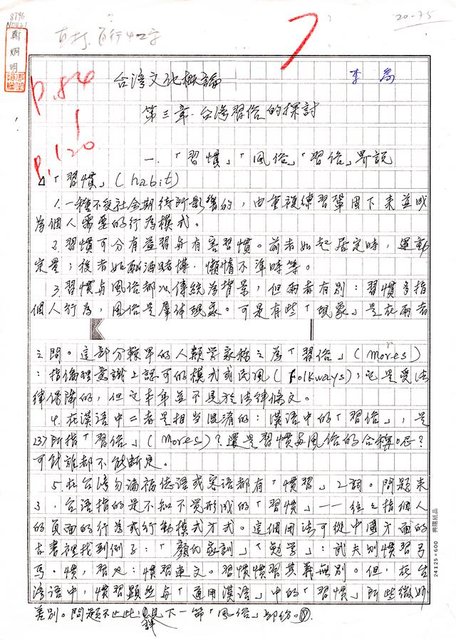 20-35
直打,百行42字
p.84
p.120
台湾文化概論
李喬
第三章.台湾習俗的探討
一.「習慣」「風俗」「習俗」界説
「習慣」(habit)
1.一種不受社会期待所影響的,由重複練習鞏固下來並成
爲個人需要的行爲模式。
2.習慣可分有益習与有害習慣。前者如起居定時,運動
定量;後者如酗酒賭博.懶惰不準時等。
3.習慣与風俗都以傳統爲背景,但兩者有別:習慣多指
個人行为,風俗是群体現象。可是有些「現象」是在兩者
之間。這部分難早的人類学家称之為「習俗」(mores)
:指倫理意識上認可的模式或民風(Folkways);它是受法
律保障的,但它本身並不是於法律條文。
4.在漢語中二者是相当混淆的:漢語中的「習俗」,是
(3)所指「習俗」(mores)?還是習慣与風俗的合稱呢?
可能誰都不能断定。
5.在台湾勾論福佬語或客語都有「慣習」之詞。問題來
了.台語指的是不知不覺形成的「習慣」——往往指個人
的負面的行爲或行動模式方式。這個用法可從中國方面的
古書裡找到例子:「顏氏家訓」「勉学」:武夫則慣習弓
馬。慣,習也;慣習連文。習慣慣習其義無別。但,在台
湾語中,慣習顯然与「通用漢語」中的「習慣」有些微妙
差別。問題不止此,見下一節「風俗」部份。
24×25=600